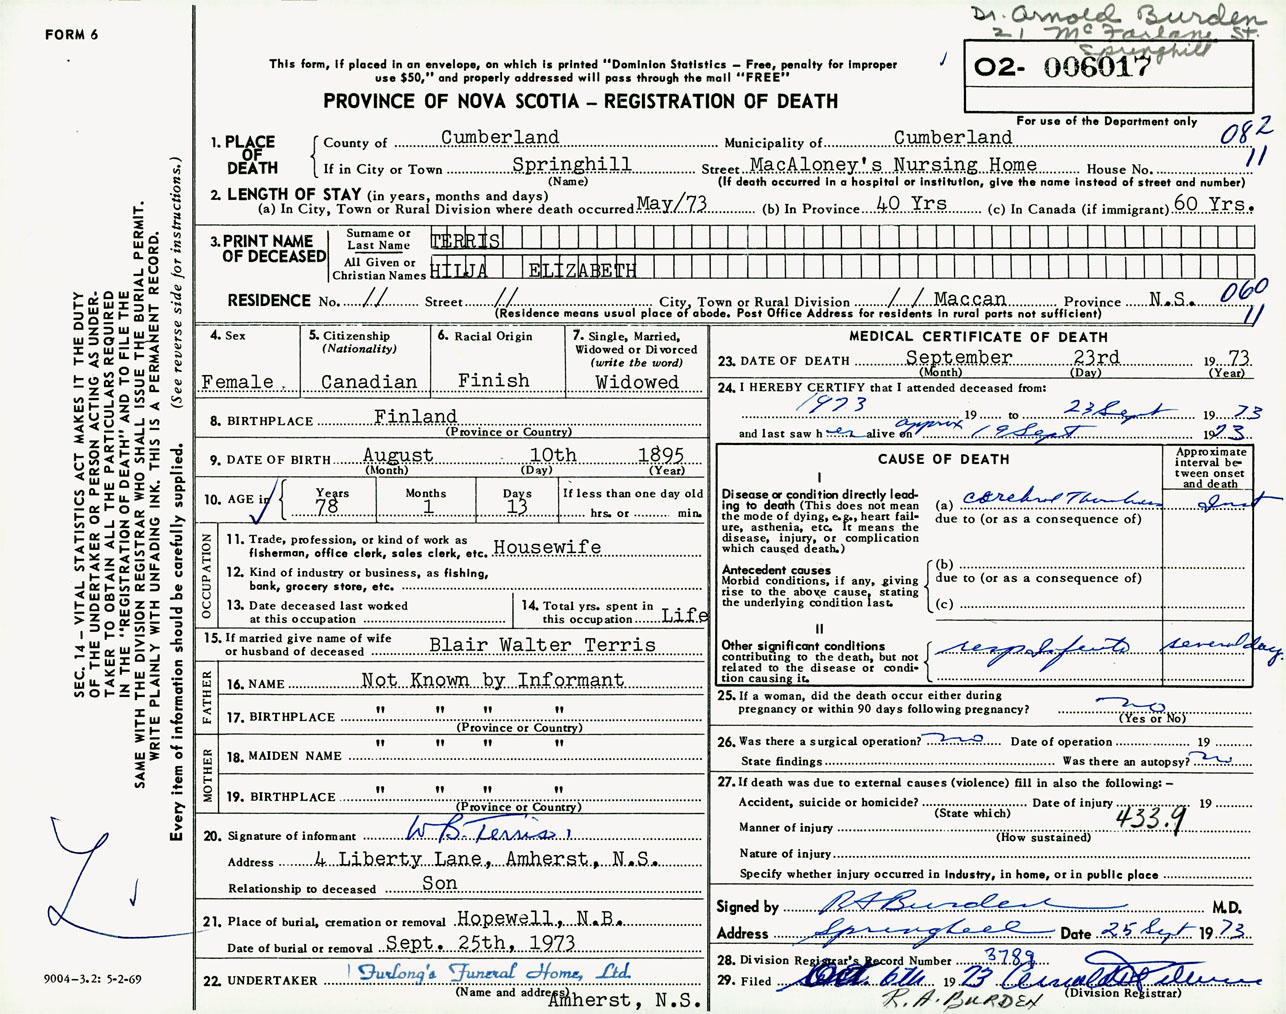 Dr. Arnold Burden
21 McFarlane St.
Springhill
FORM 6
This form, if placed in an envelope, on which is printed "Dominion Statistics — Free, penalty for improper
use $50," and properly addressed will pass through the mail "FREE"
O2- 006017
PROVINCE OF NOVA SCOTIA — REGISTRATION OF DEATH
For use of the Department only
1. PLACE OF DEATH
County of Cumberland Municipality of Cumberland 082
If in City or Town Springhill Street MacAloney's Nursing Home House No. 11
(Name) (If death occurred in a hospital or institution, give the name instead of street and number)
2. LENGTH OF STAY (in years, months and days)
(a) In City, Town or Rural Division where death occurred May/73 (b) In Province 40 Yrs (c) In Canada (if immigrant) 60 Yrs.
3. PRINT NAME OF DECEASED
Surname or Last Name TERRIS
All Given or Christian Names HILJA ELIZABETH
RESIDENCE No. // Street // City, Town or Rural Division / / Maccan Province N.S. 060
(Residence means usual place of abode. Post Office Address for residents in rural parts not sufficient) 11
4. Sex
Female.
5. Citizenship
(Nationality)
Canadian
6. Racial Origin
Finish
7. Single, Married,
Widowed or Divorced
(write the word)
Widowed
8. BIRTHPLACE Finland
(Province or Country)
9. DATE OF BIRTH August 10th 1895
(Month) (Day) (Year)
10. AGE in
Years 78
Months 1
Days 13
If less than one day old
hrs. or min.
OCCUPATION
11. Trade, profession, or kind of work as
fisherman, office clerk, sales clerk, etc. Housewife
12. Kind of industry or business, as fishing,
bank, grocery store, etc.
13. Date deceased last worked
at this occupation
14. Total yrs. spent in
this occupation Life
15. If married give name of wife
or husband of deceased Blair Walter Terris
FATHER
16. NAME Not Known by Informant
17. BIRTHPLACE " " " "
(Province or Country)
MOTHER
18. MAIDEN NAME " " " "
19. BIRTHPLACE " " " "
(Province or Country)
20. Signature of informant W B. Terris
Address 4 Liberty Lane, Amherst, N.S.
Relationship to deceased Son
21. Place of burial, cremation or removal Hopewell, N.B.
Date of burial or removal Sept. 25th, 1973
22. UNDERTAKER Furlong's Funeral Home, Ltd.
(Name and address) Amherst, N.S.
MEDICAL CERTIFICATE OF DEATH
23. DATE OF DEATH September 23rd 1973
(Month) (Day) (Year)
24. I HEREBY CERTIFY that I attended deceased from:
1973 19 to 23 Sept 1973
and last saw her alive on approx 19 Sept 1973
CAUSE OF DEATH
Approximate
interval be-
tween onset
and death
I
Disease or condition directly lead-
ing to death (This does not
mean
the mode of dying, e.g., heart fail-
ure, asthenia, etc. It means the
disease, injury, or complication
which caused death.)
(a)
due to (or as a consequence of)
Antecedent causes
Morbid conditions, if any, giving
rise to the above cause, stating
the underlying condition last.
(b)
due to (or as a consequence of)
(c)
II
Other significant conditions
contributing to the death, but not
related to the disease or condi-
tion causing it.
several day.
25. If a woman, did the death occur either during
pregnancy or within 90 days following pregnancy? no
(Yes or No)
26. Was there a surgical operation? no Date of operation 19
State findings Was there an autopsy? no
27. If death was due to external causes (violence) fill in also the following: —
Accident, suicide or homicide? Date of injury 19
(State which)
Manner of injury 433.9
(How sustained)
Nature of injury
Specify whether injury occurred in industry, in home, or in public place
Signed by RA Burden M.D.
Address Springhill Date 25 Sept 1973
28. Division Registrar's Record Number 3789
29. Filed Oct. 6th 1973
(Division Registrar)
R. A. BURDEN
SEC. 14 — VITAL STATISTICS ACT MAKES IT THE DUTY
OF THE UNDERTAKER OR PERSON ACTING AS UNDER-
TAKER TO OBTAIN ALL THE PARTICULARS REQUIRED
IN THE "REGISTRATION OF DEATH" AND TO FILE THE
SAME WITH THE DIVISION REGISTRAR WHO SHALL ISSUE THE BURIAL PERMIT.
WRITE PLAINLY WITH UNFADING INK. THIS IS A PERMANENT RECORD.
Every item of information should be carefully supplied. (See reverse side for instructions.)
9004-3.2: 5-2-69